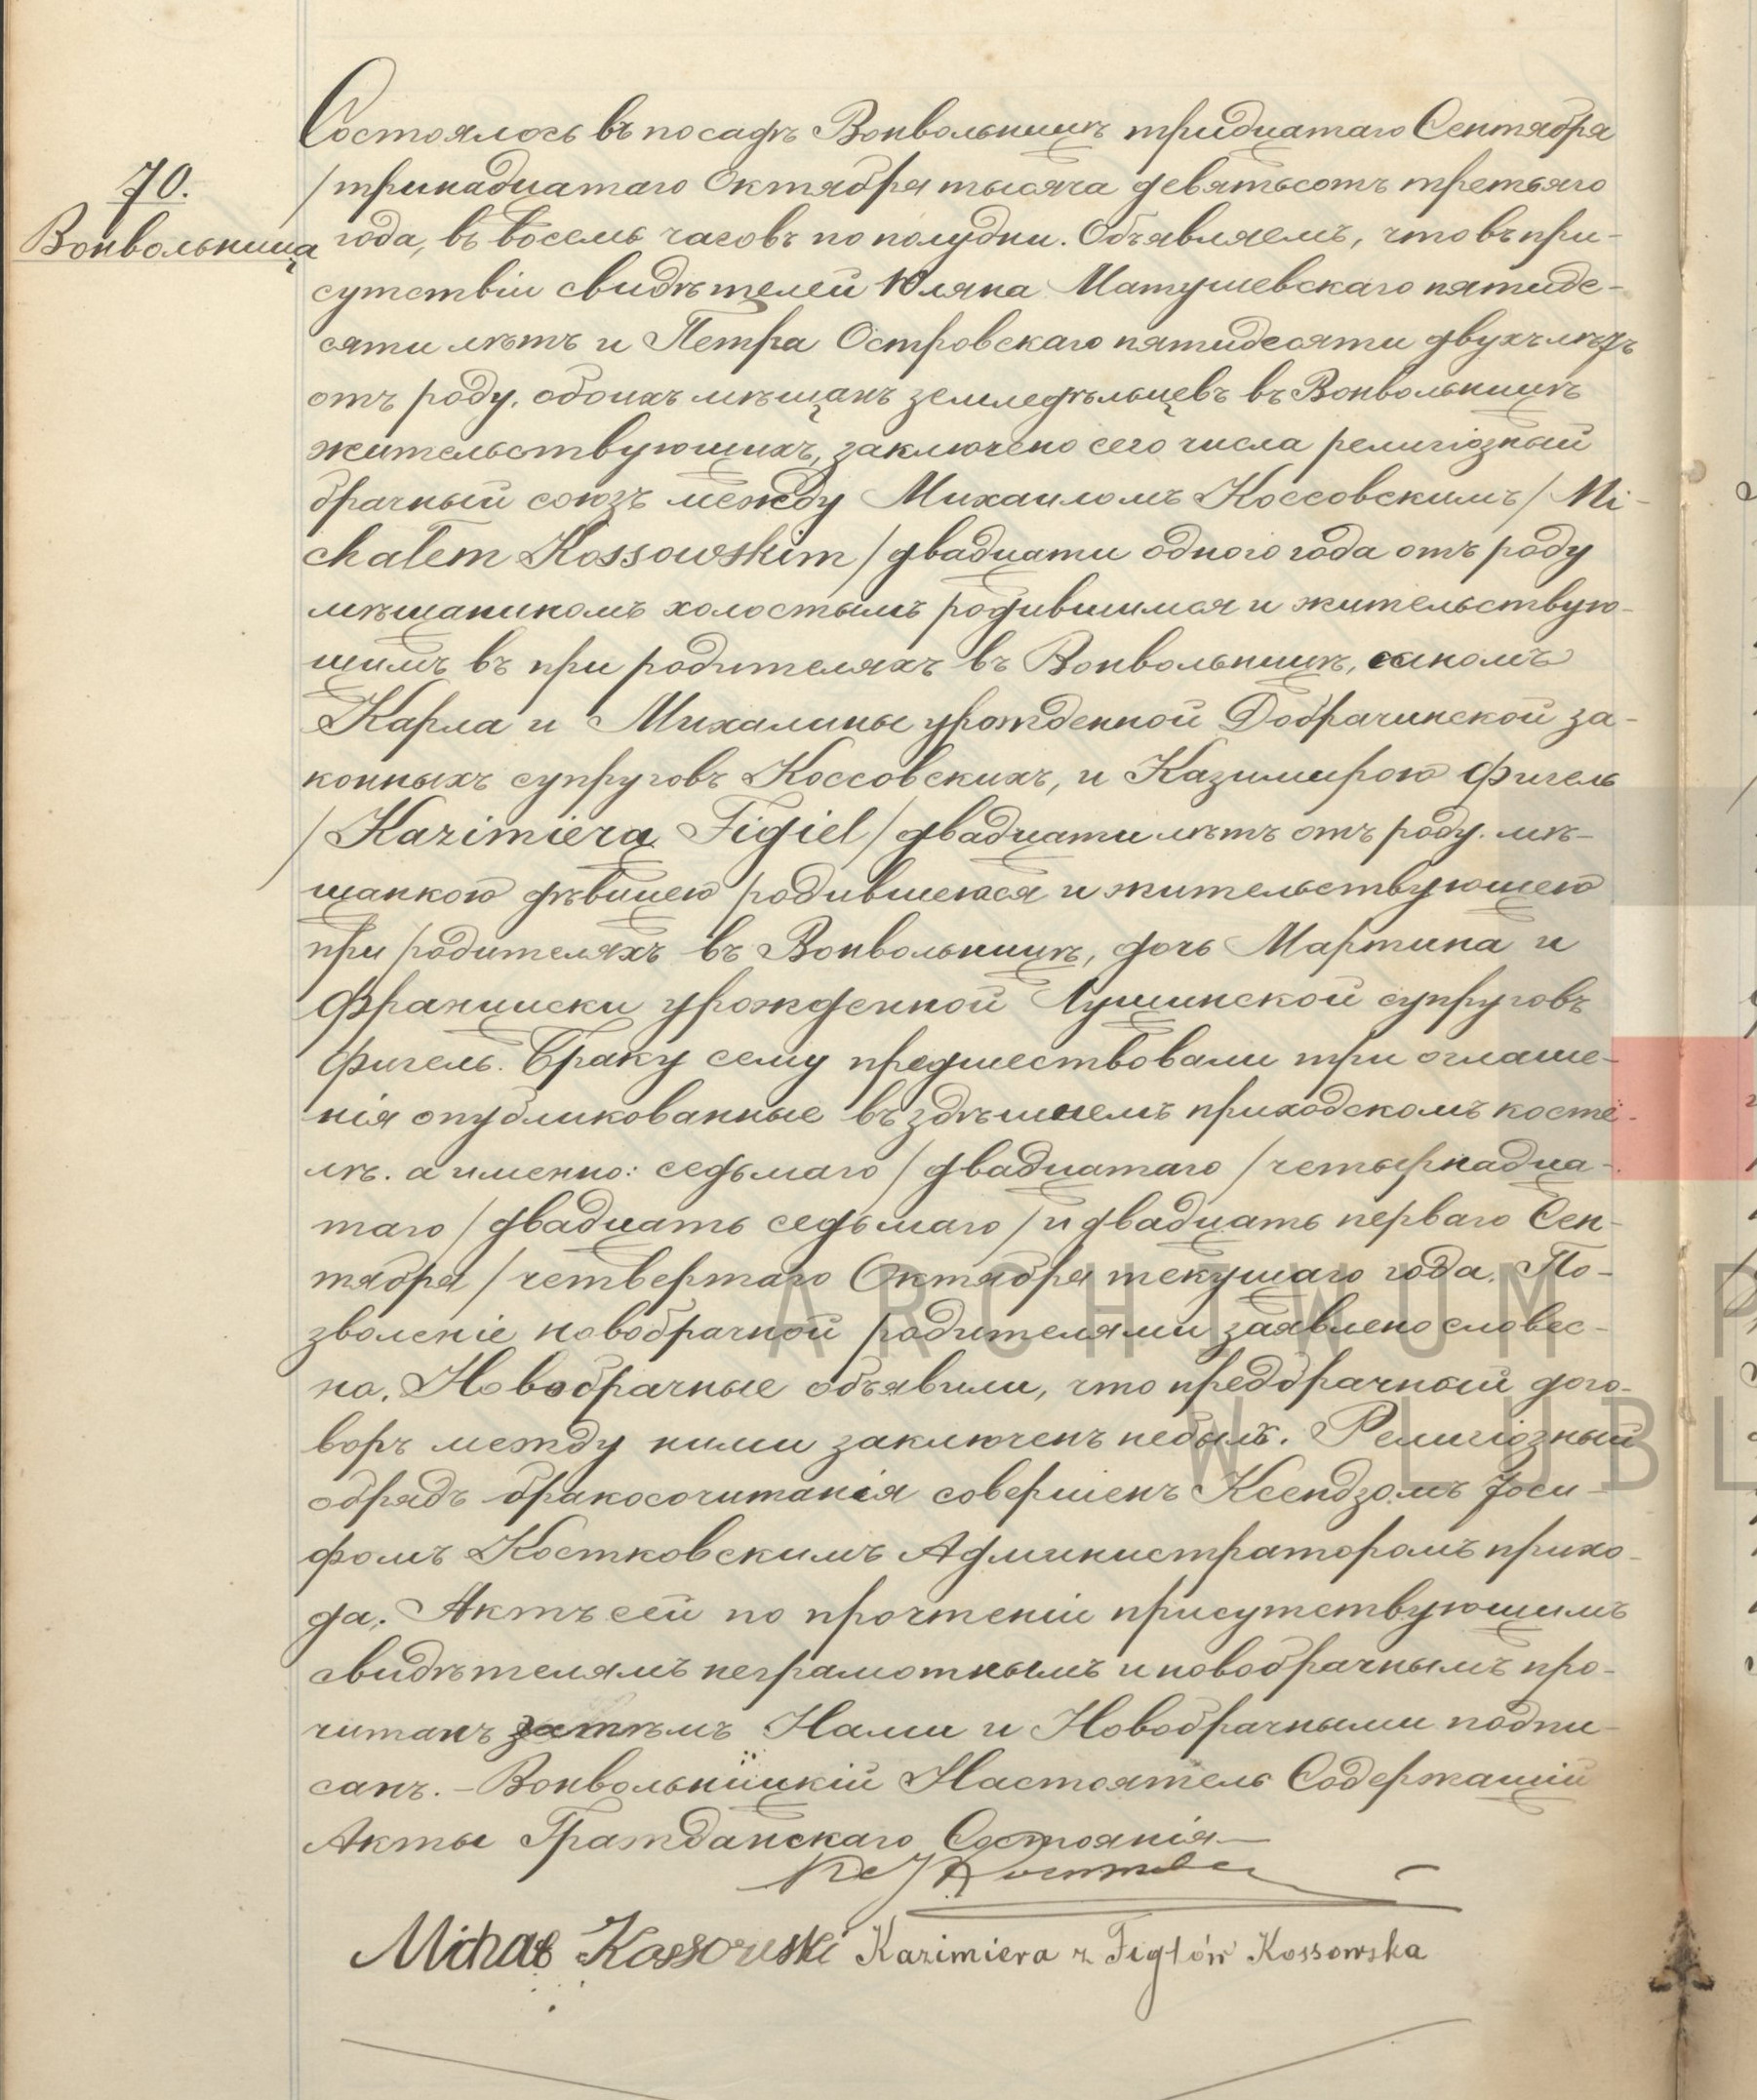 70.
Вонвольница
Состоялось въ посадѣ Вонвольницѣ тридцатаго Сентября
/тринадцатаго Октября тысяча девятьсотъ третьяго
года, въ восемь часовъ по полудни. Объявляемъ, что въ при-
сутствіи свидѣтелей Юляна Матушевскаго пятиде-
сяти лѣтъ и Петра Островскаго пятидесяти двухъ лѣтъ
отъ роду, обоихъ мѣщанъ земледѣльцевъ въ Вонвольницѣ
жительствующихъ, заключено сего числа религіозный
брачный союзъ между Михаиломъ Коссовскимъ /Mi-
chałem Kossowskim/ двадцати одного года отъ роду
мѣщаникомъ холостымъ родившимся и жительствую-
щимъ въ при родителяхъ въ Вонвольницѣ, сыномъ
Карла и Михалины урожденной Добрачинской за-
конныхъ супруговъ Коссовскихъ, и Казимирою Фигель
/Kazimiera Figiel/ двадцати лѣтъ отъ роду. мѣ-
щанкою дѣвицею родившеюся и жительствующею
при родителяхъ въ Вонвольницѣ, дочь Мартина и
Франциски урожденной Лущинской супруговъ
Фигель. Браку сему предшествовали три оглаше-
нія опубликованные въ здѣшнемъ приходскомъ костё-
лѣ. а именно: седьмаго /двадцатаго/ четырнадца-
таго /двадцать седьмаго/ и двадцать перваго Сен-
тября /четвертаго Октября текущаго года. По-
зволеніе новобрачной родителями заявлено словес-
но. Новобрачные объявили, что предбрачный дого-
воръ между ними заключенъ небылъ. Религіозный
обрядъ бракосочитанія совершенъ Ксендзомъ Іоси-
фомъ Костковскимъ Администраторомъ прихо-
да. Актъ сей по прочтеніи присутствующимъ
свидѣтелямъ неграмотнымъ и новобрачнымъ про-
читанъ затѣмъ Нами и Новобрачными подпи-
санъ. – Вонвольницкій Настоятель Содержащій
Акты Гражданскаго Состоянія
Michał Kossowski Kazimiera z Figlów Kossowska
ARCHIWUM P
W LUBL